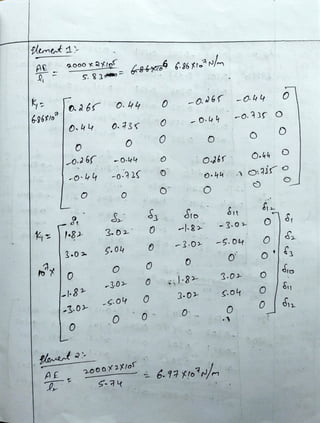 Element 1:-
AE/l₁ = 2000×2×10⁵ / 5.83 = 6.86×10⁷ N/m
K₁ =
6.86×10⁷
0.265 0.44 0 -0.265 -0.44 0
0.44 0.735 0 -0.44 -0.735 0
0 0 0 0 0 0
-0.265 -0.44 0 0.265 0.44 0
-0.44 -0.735 0 0.44 0.735 0
0 0 0 0 0 0
δ₁ δ₂ δ₃ δ₁₀ δ₁₁ δ₁₂
K₁ = 1.82 3.02 0 -1.82 -3.02 0 δ₁
3.02 5.04 0 -3.02 -5.04 0 δ₂
10⁷× 0 0 0 0 0 0 δ₃
-1.82 -3.02 0 1.82 3.02 0 δ₁₀
-3.02 -5.04 0 3.02 5.04 0 δ₁₁
0 0 0 0 0 0 δ₁₂
Element 2:-
AE/l₂ = 2000×2×10⁵ / 5.74 = 6.97×10⁷ N/m